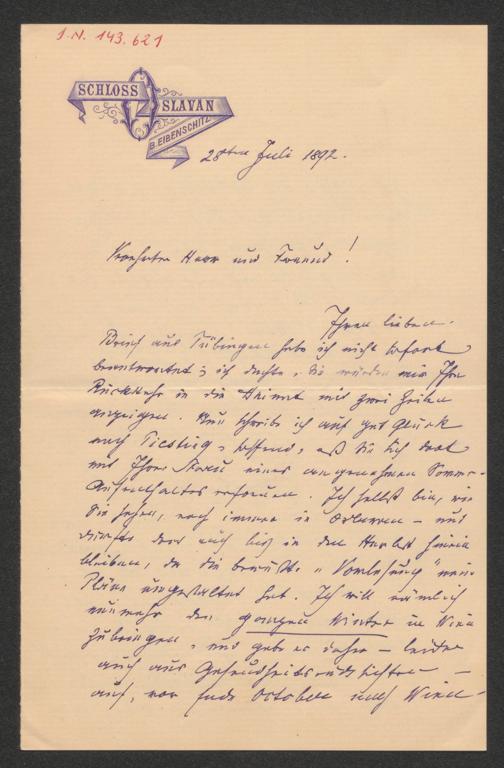 I.N. 143.621
SCHLOSS
OSLAVAN
B. EIBENSCHITZ
28ten Juli 1892.
Verehrter Herr und Freund!
Ihren lieben
Brief aus Tübingen habe ich nicht sofort
beantwortet; ich dachte, Sie würden mir Ihre
Rückkehr in die Heimat mit zwei Zeilen
anzeigen. Nun schreibe ich auf gut Glück
nach, hoffend, daß Sie sich dort
mit Ihrer Frau eines angenehmen Sommer-
Aufenthaltes erfreuen. Ich selbst bin, wie
Sie sehen, noch immer in Oslawan – und
dürfte dort auch bis in den Herbst hinein
bleiben, da die bewußte „Vorlesung" meine
Pläne umgestaltet hat. Ich will nämlich
nunmehr den ganzen Winter in Wien
zubringen, und gehe daher – leider
auch aus Gesundheitsrücksichten –
auf, vor Ende October nach Wien